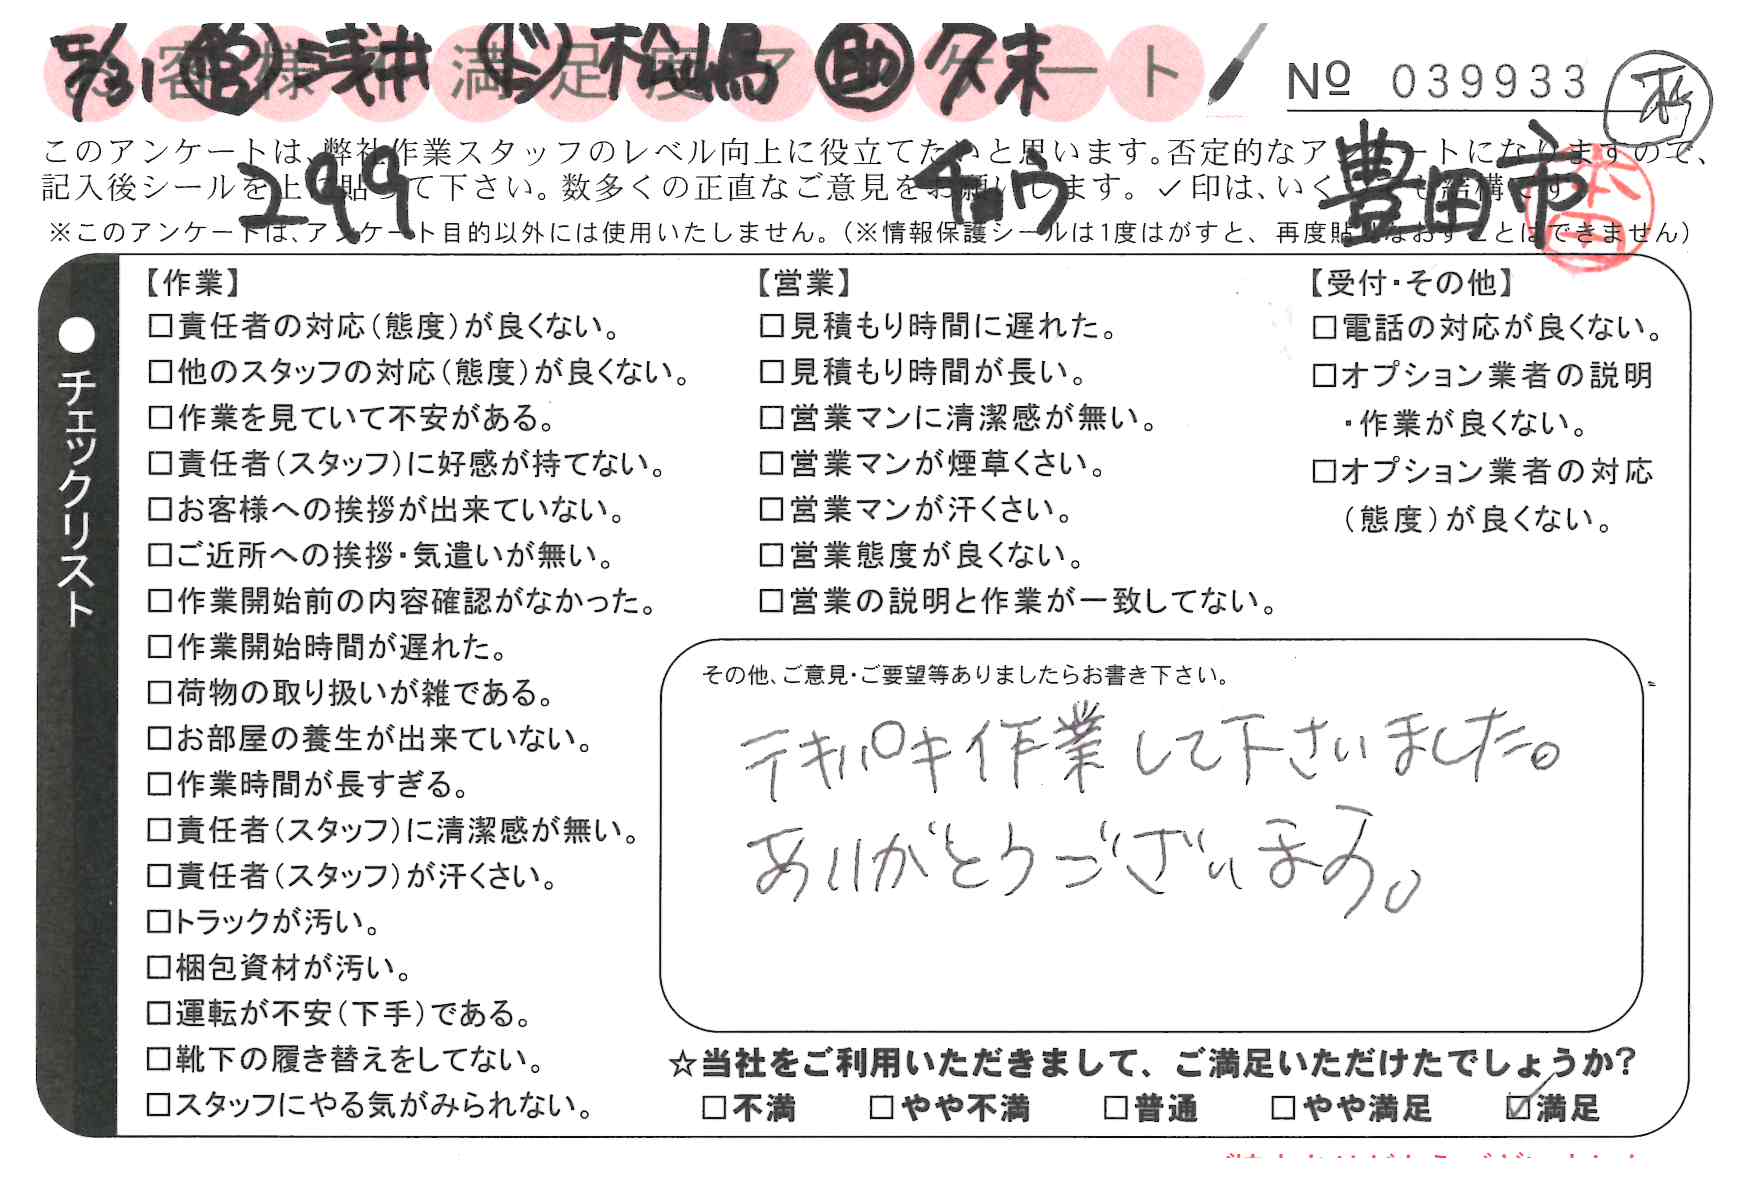 5/31 営 浅井 ド 松嶋 助 久末
お客様不満足度アンケート
No 039933
このアンケートは、弊社作業スタッフのレベル向上に役立てたいと思います。否定的なアンケートになりますので、
記入後シールを上に貼って下さい。数多くの正直なご意見をお願いします。✓印は、いくつでも結構です
299 豊田市 本田
※このアンケートは、アンケート目的以外には使用いたしません。(※情報保護シールは1度はがすと、再度貼りなおすことはできません)
●チェックリスト
【作業】
□責任者の対応(態度)が良くない。
□他のスタッフの対応(態度)が良くない。
□作業を見ていて不安がある。
□責任者(スタッフ)に好感が持てない。
□お客様への挨拶が出来ていない。
□ご近所への挨拶・気遣いが無い。
□作業開始前の内容確認がなかった。
□作業開始時間が遅れた。
□荷物の取り扱いが雑である。
□お部屋の養生が出来ていない。
□作業時間が長すぎる。
□責任者(スタッフ)に清潔感が無い。
□責任者(スタッフ)が汗くさい。
□トラックが汚い。
□梱包資材が汚い。
□運転が不安(下手)である。
□靴下の履き替えをしてない。
□スタッフにやる気がみられない。
【営業】
□見積もり時間に遅れた。
□見積もり時間が長い。
□営業マンに清潔感が無い。
□営業マンが煙草くさい。
□営業マンが汗くさい。
□営業態度が良くない。
□営業の説明と作業が一致してない。
【受付・その他】
□電話の対応が良くない。
□オプション業者の説明
・作業が良くない。
□オプション業者の対応
(態度)が良くない。
その他、ご意見・ご要望等ありましたらお書き下さい。
テキパキ作業して下さいました。
ありがとうございます。
☆当社をご利用いただきまして、ご満足いただけたでしょうか?
□不満 □やや不満 □普通 □やや満足 ☑満足